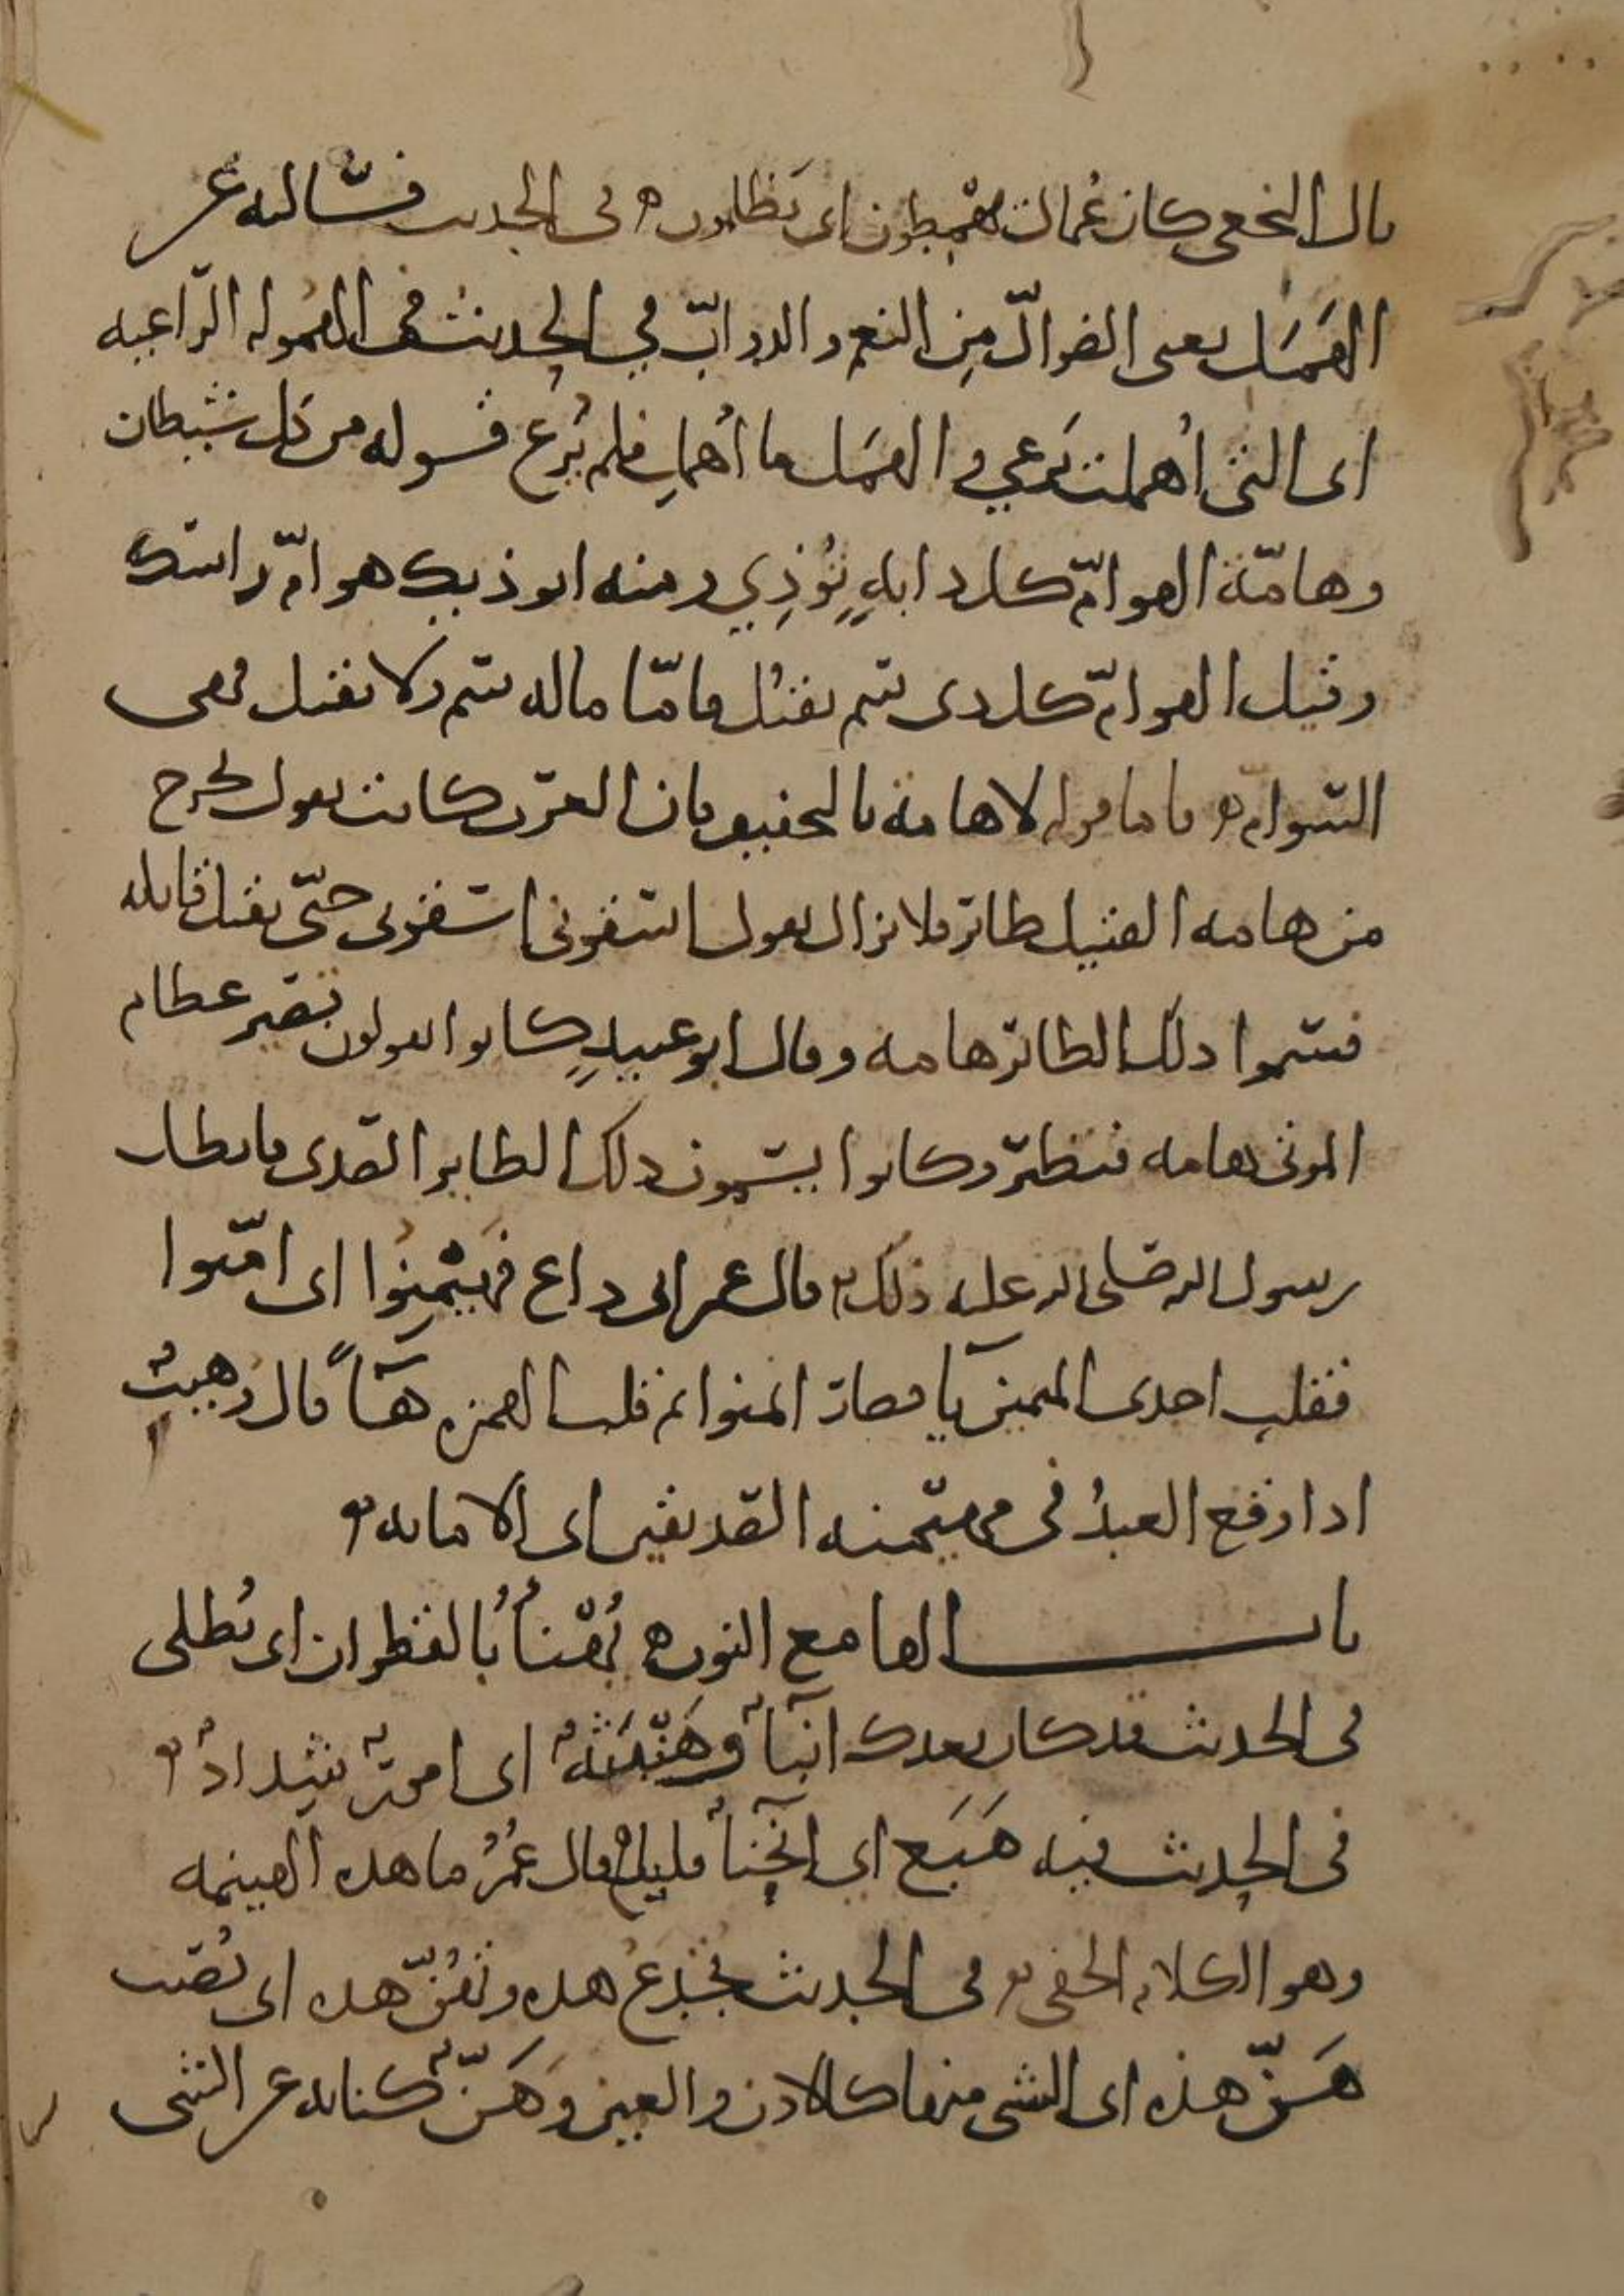 قال النخعي كان عمال يهمطون اي يظلمون في الحديث فسألته عن
الهمل يعني الضوالّ من النعم والدوابّ في الحديث في الهمولة الراعية
اي التي أُهملت ترعي والهمل ما أُهمل فلم يُرع قوله من كل شيطان
وهامّة الهوامّ كل دابةٍ تؤذي ومنه ايوذيك هوامّ رأسك
وقيل الهوامّ كل ذي سم يقتل فامّا ماله سم ولا يقتل فهي
السوامّ فاما قوله لا هامة بالتخفيف فان العرب كانت تقول يخرج
من هامه القتيل طائر فلا يزال يقول اسقوني اسقوني حتّى يقتل قاتله
فسمّوا ذلك الطائر هامه وقال ابو عبيدٍ كانوا يقولون تصير عظام
الموتى هامه فتطير وكانوا يسمون ذلك الطاير الصدى فابطل
رسول الله صلى الله عليه ذلك قال عمر اني داع فهَيْمِنُوا اي امّنوا
فقلب احدى الميمين يا فصار ايمنوا ثم قلب الهمزه هآءً قال وهيب
اذا وقع العبدُ في مهيمنه الصديقين اي الامانه
باب الها مع النون يُهْنَأُ بالقطران اي يُطلى
في الحديث قد كان بعدك انبآءٌ وهَنْبَثَةٌ اي امورٌ شدادٌ
في الحديث فيه هَنَع اي انحنآءٌ قليل قال عُمَرُ ما هذه الهينمه
وهو الكلام الخفي في الحديث تجدع هذه وتهُنّ هذه اي تصيب
هَنّ هذه اي الشي منها كالاذن والعين وهَنٌّ كنايه عن الشي